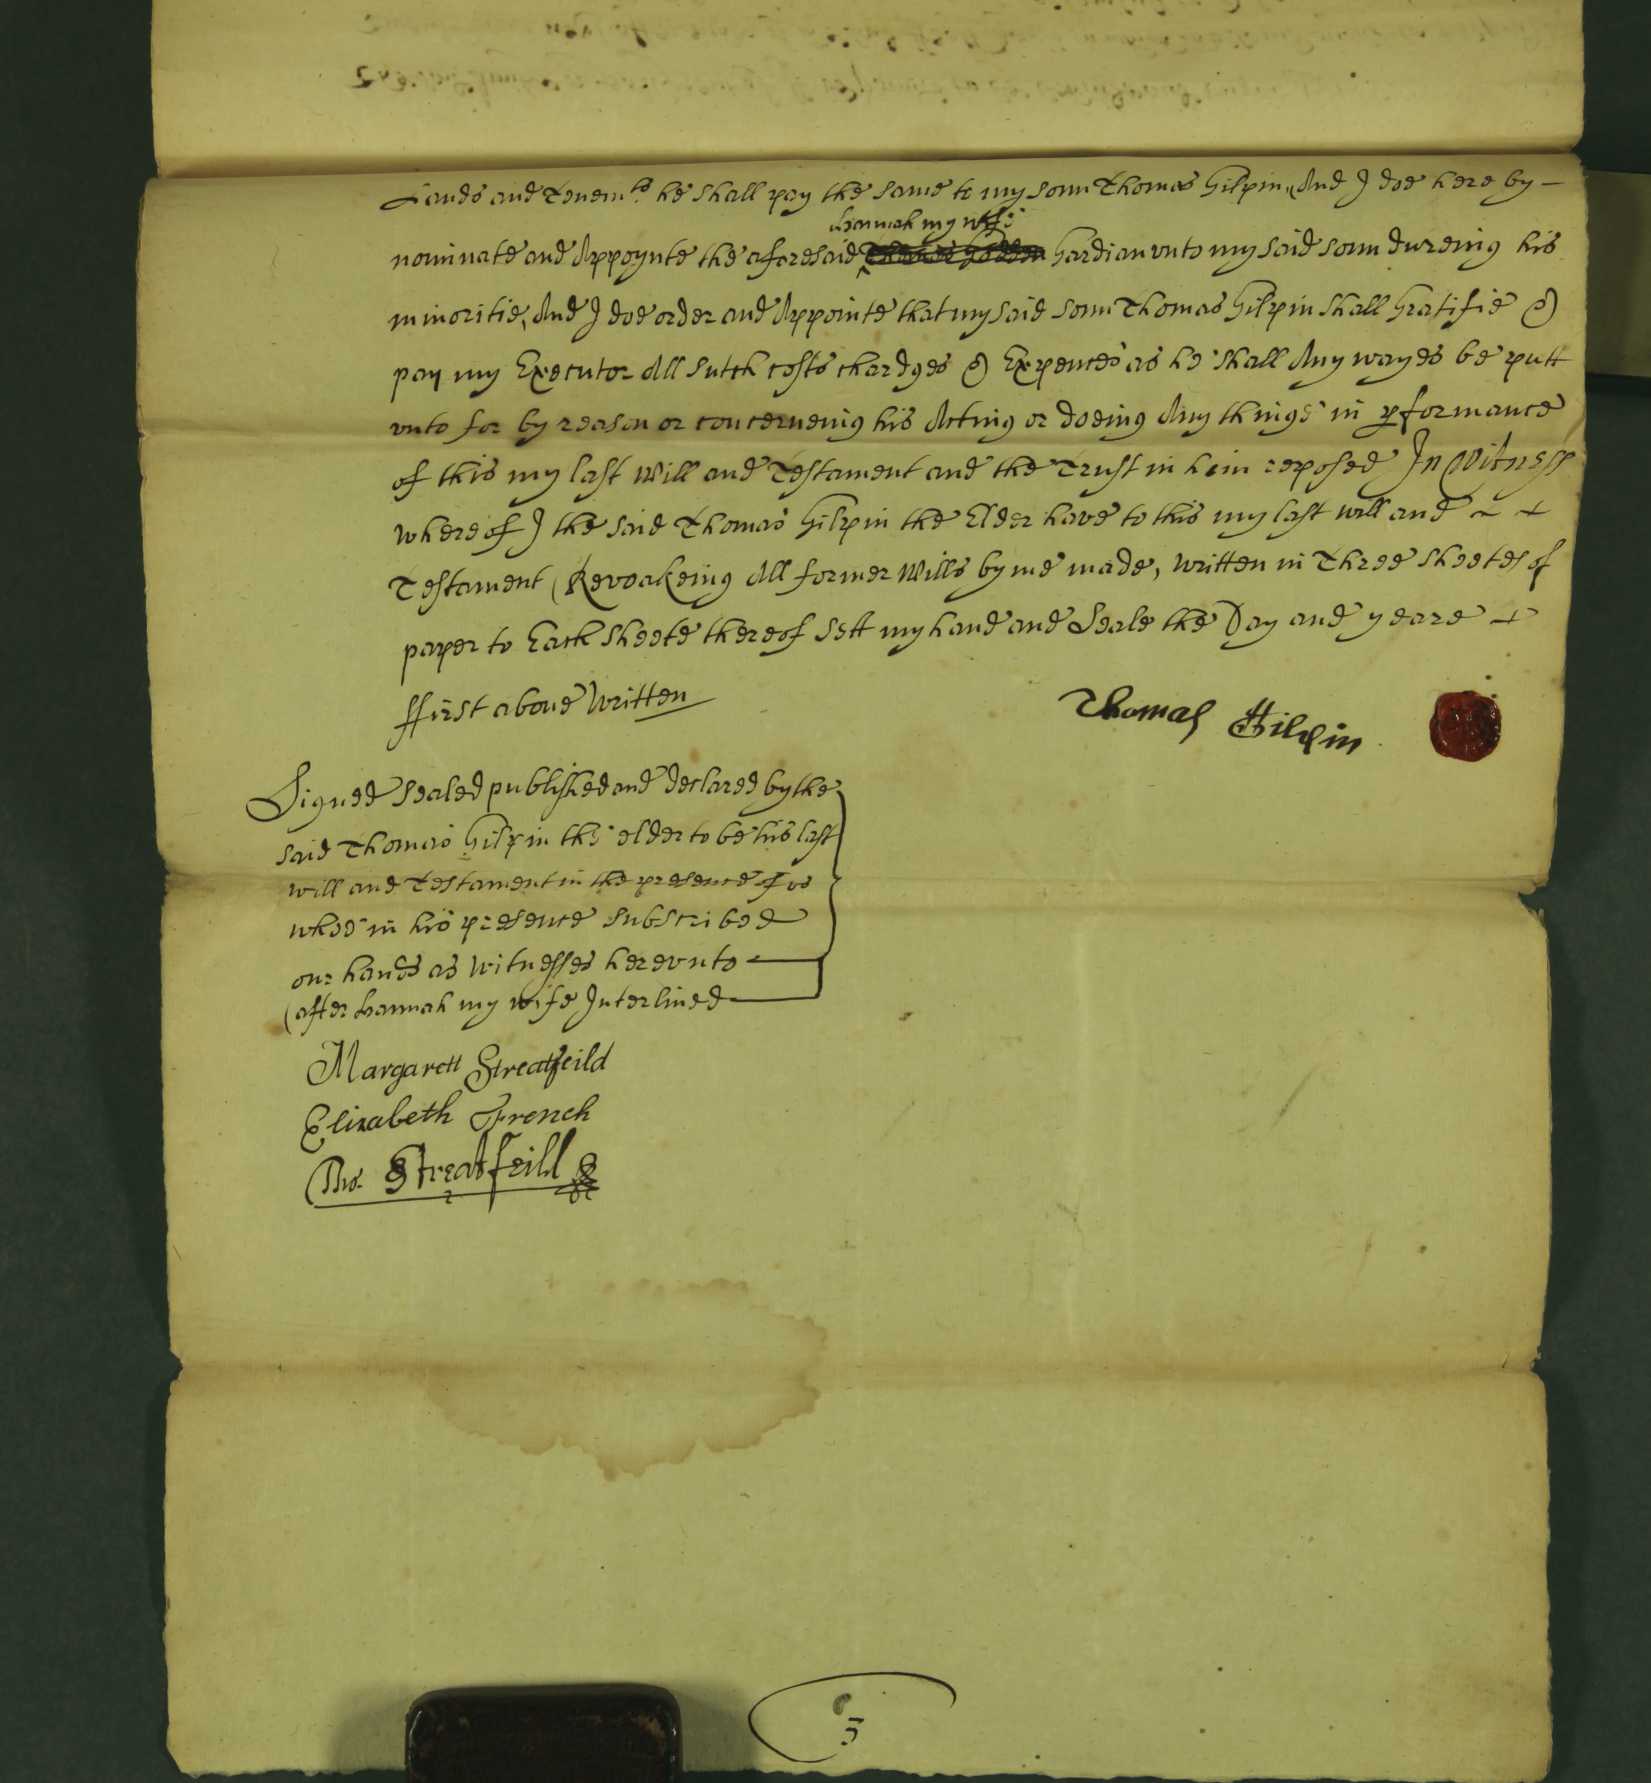 Lands and Tenemts he shall pay the same to my sonn Thomas Gilpin, And I doe hereby
Hannah my wife
nominate and Appoynte the aforesaid Gardian unto my said sonn dureing his
minoritie, And I doe order and Appointe that my said sonn Thomas Gilpin shall Gratifie &
pay my Executor All sutch costs chardges & Expences as he shall Any wayes be putt
vnto for by reason or concerneing his Acting or doeing Any things in pformance
of this my last Will and Testament and the Trust in him reposed In Witness
whereof I the said Thomas Gilpin the Elder have to this my last will and
Testament (Revoakeing All former Wills by me made, written in Three sheetes of
paper to Each sheete thereof sett my hand and Seale the Day and yeare
ffirst above Written
Thomas Gilpin
Signed sealed published and declared by the
said Thomas Gilpin the elder to be his last
will and Testament in the presence of vs
whoe in his presence subscribed
our hands as witnesses herevnto
(after Hannah my wife Interlined
Margarett Streatfeild
Elizabeth French
Tho. Streatfeild
3